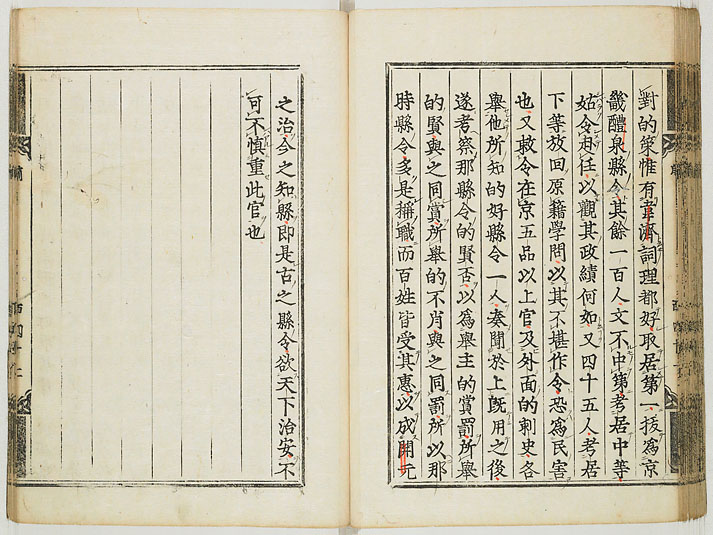 對的策惟有韋濟詞理都好取居第一拔爲京
畿醴泉縣令其餘一百人文不中第考居中等
姑令赴任以觀其政績何如又四十五人考居
下等放回原籍學問以其不堪作令恐爲民害
也又敕令在京五品以上官及外面的刺史各
舉他所知的好縣令一人奏聞於上旣用之後
遂考察那縣令的賢否以爲舉主的賞罰所舉
的賢與之同賞所舉的不肖與之同罰所以那
時縣令多是稱職而百姓皆受其惠以成開元
之治今之知縣卽是古之縣令欲天下治安不
可不慎重此官也